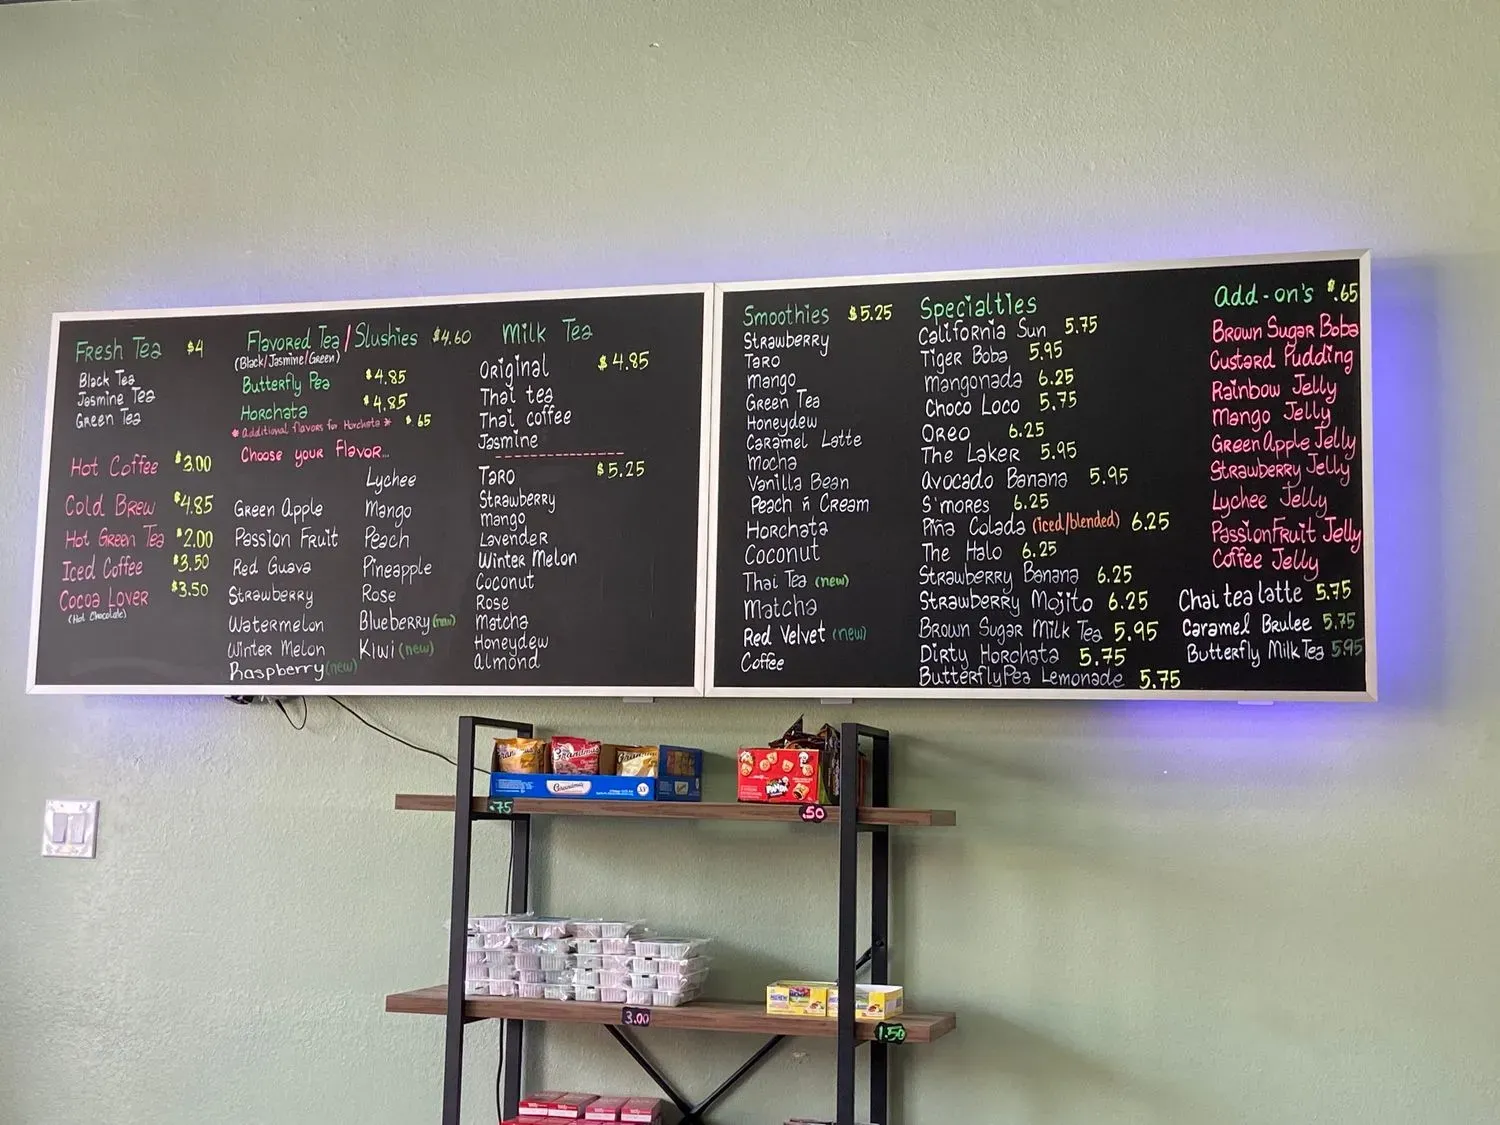 Fresh Tea $4
Black Tea
Jasmine Tea
Green Tea
Hot Coffee $3.00
Cold Brew $4.85
Hot Green Tea $2.00
Iced Coffee $3.50
Cocoa Lover $3.50
(Hot Chocolate)
Flavored Tea/Slushies $4.60
(Black/Jasmine/Green)
Butterfly Pea $4.85
Horchata $4.85
* Additional flavors for Horchata * $.65
Choose your Flavor...
Green Apple
Passion Fruit
Red Guava
Strawberry
Watermelon
Winter Melon
Raspberry (new)
Lychee
Mango
Peach
Pineapple
Rose
Blueberry (new)
Kiwi (new)
Milk Tea
Original $4.85
Thai tea
Thai coffee
Jasmine
Taro $5.25
Strawberry
Mango
Lavender
Winter Melon
Coconut
Rose
Matcha
Honeydew
Almond
Smoothies $5.25
Strawberry
Taro
Mango
Green Tea
Honeydew
Caramel Latte
Mocha
Vanilla Bean
Peach n Cream
Horchata
Coconut
Thai Tea (new)
Matcha
Red Velvet (new)
Coffee
Specialties
California Sun 5.75
Tiger Boba 5.95
Mangonada 6.25
Choco Loco 5.75
Oreo 6.25
The Laker 5.95
Avocado Banana 5.95
S'mores 6.25
Piña Colada (iced/blended) 6.25
The Halo 6.25
Strawberry Banana 6.25
Strawberry Mojito 6.25
Brown Sugar Milk Tea 5.95
Dirty Horchata 5.75
ButterflyPea Lemonade 5.75
Add-on's $.65
Brown Sugar Boba
Custard Pudding
Rainbow Jelly
Mango Jelly
Green Apple Jelly
Strawberry Jelly
Lychee Jelly
PassionFruit Jelly
Coffee Jelly
Chai tea latte 5.75
Caramel Brulee 5.75
Butterfly Milk Tea 5.95
Grandma's
.75
.50
3.00
1.50